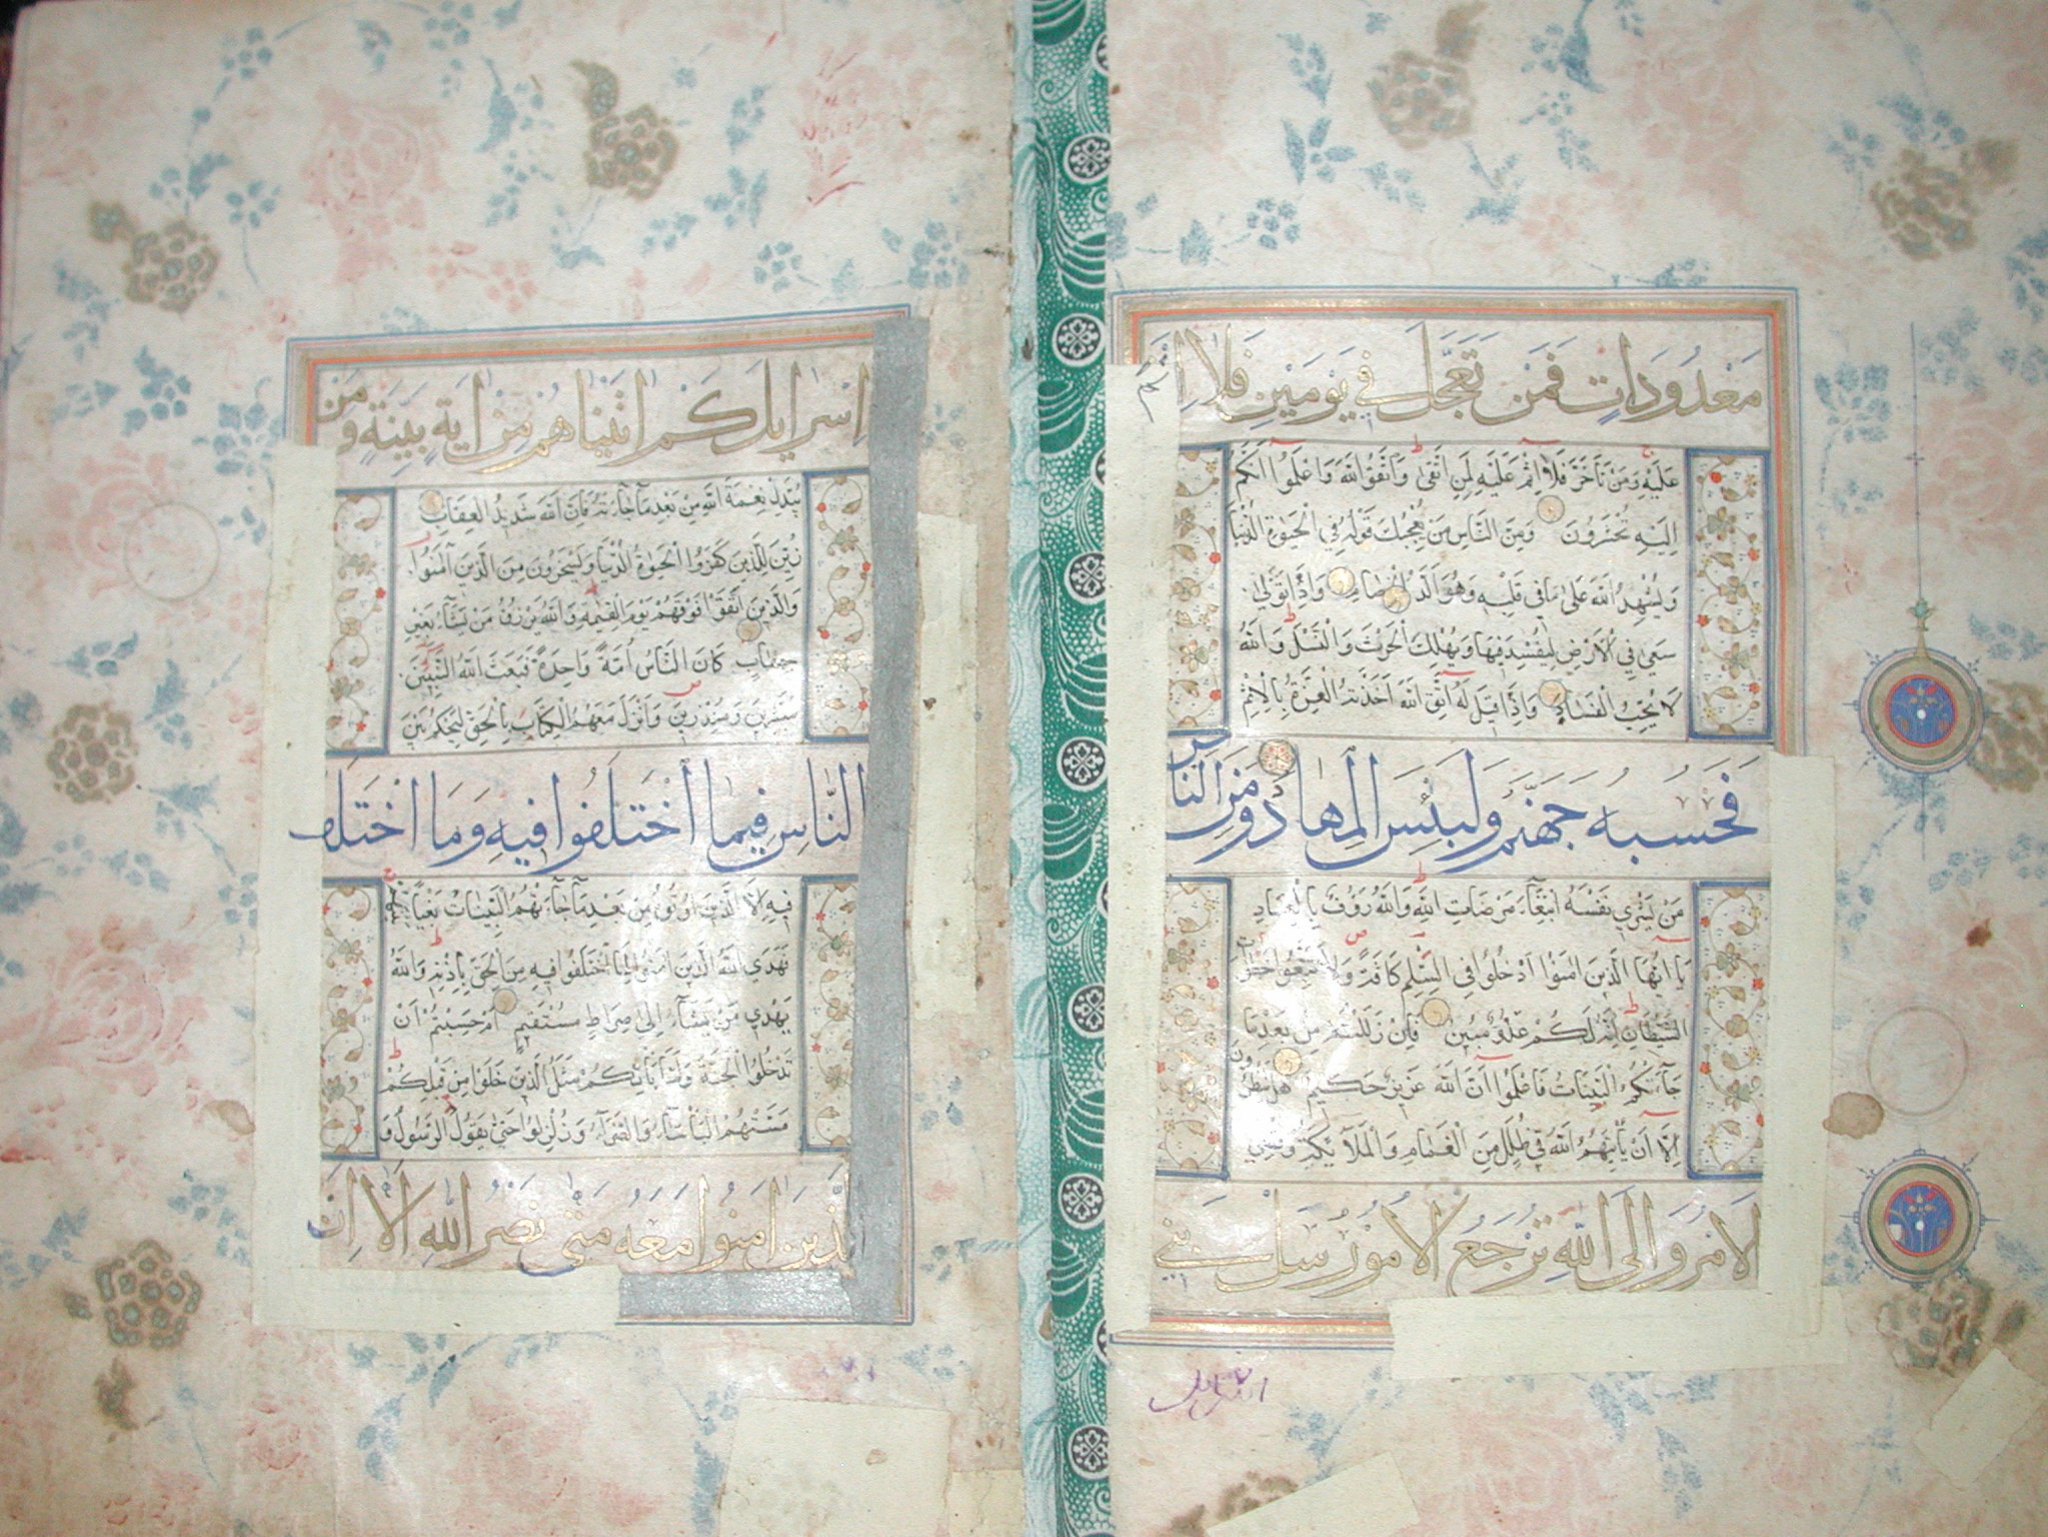 مَعْدُودَاتٍ فَمَن تَعَجَّلَ فِي يَوْمَيْنِ فَلَا اثم
عَلَيْهِ وَمَنْ تَأَخَّرَ فَلَا اِثْمَ عَلَيْهِ لِمَنِ اتَّقَى وَاتَّقُوا اللّهَ وَاعْلَمُوا اَنَّكُمْ
اِلَيْهِ تُحْشَرُونَ وَمِنَ النَّاسِ مَنْ يُعْجِبُكَ قَوْلُهُ فِي الْحَيٰوةِ الدُّنْيَا
وَيُشْهِدُ اللّهَ عَلَى مَا فِي قَلْبِهِ وَهُوَ اَلَدُّ الْخِصَامِ وَاِذَا تَوَلَّى
سَعَى فِي الْاَرْضِ لِيُفْسِدَ فِيهَا وَيُهْلِكَ الْحَرْثَ وَالنَّسْلَ وَاللّهُ
لَا يُحِبُّ الْفَسَادَ وَاِذَا قِيلَ لَهُ اتَّقِ اللّهَ اَخَذَتْهُ الْعِزَّةُ بِالْاِثْمِ
فَحَسْبُهُ جَهَنَّمُ وَلَبِئْسَ الْمِهَادُ وَمِنَ النَّاسِ
مَنْ يَشْرِي نَفْسَهُ ابْتِغَاءَ مَرْضَاتِ اللّهِ وَاللّهُ رَؤُفٌ بِالْعِبَادِ
يَا اَيُّهَا الَّذِينَ اٰمَنُوا ادْخُلُوا فِي السِّلْمِ كَافَّةً وَلَا تَتَّبِعُوا خطوات
الشَّيْطَانِ اِنَّهُ لَكُمْ عَدُوٌّ مُبِينٌ فَاِنْ زَلَلْتُمْ مِنْ بَعْدِ مَا
جَاءَتْكُمُ الْبَيِّنَاتُ فَاعْلَمُوا اَنَّ اللّهَ عَزِيزٌ حَكِيمٌ هَلْ يَنْظُرُونَ
اِلَّا اَنْ يَأْتِيَهُمُ اللّهُ فِي ظُلَلٍ مِنَ الْغَمَامِ وَالْمَلٰئِكَةُ وَقُضِيَ
الْاَمْرُ وَاِلَى اللّهِ تُرْجَعُ الْاُمُورُ سَلْ بَنِي
اسرایل
اِسْرَايلَ كَمْ اٰتَيْنَاهُمْ مِنْ اٰيَةٍ بَيِّنَةٍ وَمَنْ
يُبَدِّلْ نِعْمَةَ اللّهِ مِنْ بَعْدِ مَا جَاءَتْهُ فَاِنَّ اللّهَ شَدِيدُ الْعِقَابِ
زُيِّنَ لِلَّذِينَ كَفَرُوا الْحَيٰوةُ الدُّنْيَا وَيَسْخَرُونَ مِنَ الَّذِينَ اٰمَنُوا
وَالَّذِينَ اتَّقَوْا فَوْقَهُمْ يَوْمَ الْقِيٰمَةِ وَاللّهُ يَرْزُقُ مَنْ يَشَاءُ بِغَيْرِ
حِسَابٍ كَانَ النَّاسُ اُمَّةً وَاحِدَةً فَبَعَثَ اللّهُ النَّبِيِّينَ
مُبَشِّرِينَ وَمُنْذِرِينَ وَاَنْزَلَ مَعَهُمُ الْكِتَابَ بِالْحَقِّ لِيَحْكُمَ بَيْنَ
النَّاسِ فِيمَا اخْتَلَفُوا فِيهِ وَمَا اخْتَلَف
فِيهِ اِلَّا الَّذِينَ اُوتُوهُ مِنْ بَعْدِ مَا جَاءَتْهُمُ الْبَيِّنَاتُ بَغْيًا بَيْنَهُمْ
فَهَدَى اللّهُ الَّذِينَ اٰمَنُوا لِمَا اخْتَلَفُوا فِيهِ مِنَ الْحَقِّ بِاِذْنِهِ وَاللّهُ
يَهْدِي مَنْ يَشَاءُ اِلَى صِرَاطٍ مُسْتَقِيمٍ اَمْ حَسِبْتُمْ اَنْ
تَدْخُلُوا الْجَنَّةَ وَلَمَّا يَأْتِكُمْ مَثَلُ الَّذِينَ خَلَوْا مِنْ قَبْلِكُمْ
مَسَّتْهُمُ الْبَأْسَاءُ وَالضَّرَّاءُ وَزُلْزِلُوا حَتَّى يَقُولَ الرَّسُولُ وَ
الَّذِينَ اٰمَنُوا مَعَهُ مَتَى نَصْرُ اللّهِ اَلَا اِنَّ